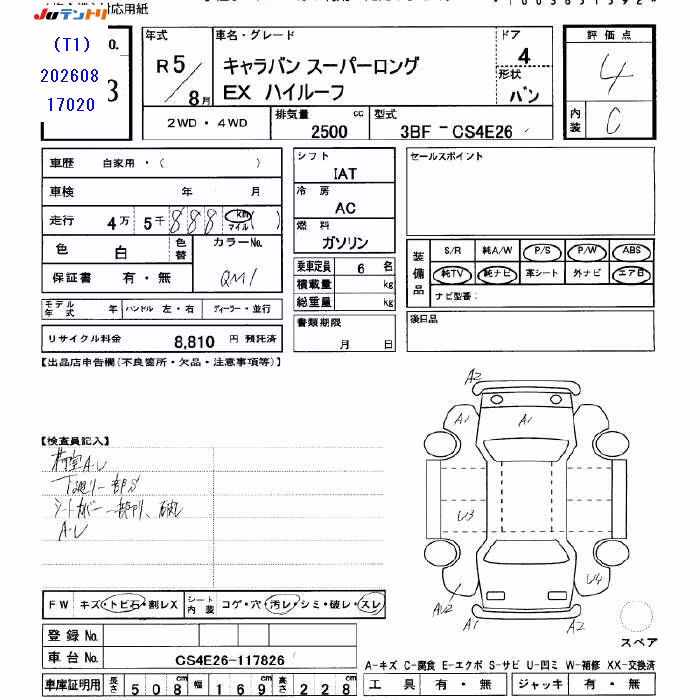 対応用紙
Juテントリ
(T1)
202608
17020
No.
3
年式
R5/8月
車名・グレード
キャラバン スーパーロング
EX ハイルーフ
ドア
4
形状
バン
評価点
4
内装
C
2WD・4WD
排気量
2500 cc
型式
3BF-CS4E26
車歴 自家用・( )
車検 年 月
走行 4万 5千 888 km マイル ( )
色 白 色替 カラーNo. QM1
保証書 有・無
モデル年式 年 ハンドル 左・右 ディーラー・並行
リサイクル料金 8,810 円 預託済
シフト
IAT
冷房
AC
燃料
ガソリン
乗車定員 6 名
積載量 kg
総重量 kg
書類期限
月 日
セールスポイント
装備品
S/R 純A/W P/S P/W ABS
純TV 純ナビ 革シート 外ナビ エア日
ナビ型番:
後日品
【出品店申告欄(不良箇所・欠品・注意事項等)】
【検査員記入】
荷室A・U
下廻り一部S
シートカバー一部スリ、破れ
A・U
A2
A1
A1
U3
U4
AU2
A1
A2
スペア
FW キズ・トビ石・割レX シート内装 コゲ・穴・汚レ・シミ・破レ・スレ
登録No.
車台No. CS4E26-117826
車庫証明用 長さ 508cm 幅 169cm 高さ 228cm
A-キズ C-腐食 E-エクボ S-サビ U-凹ミ W-補修 XX-交換済
工具 有・無 ジャッキ 有・無